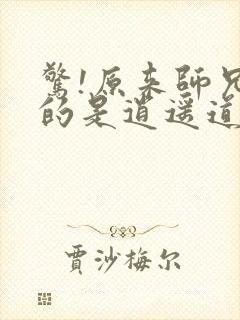 驚!原来師兄
的是逍遥道
賈沙梅尔